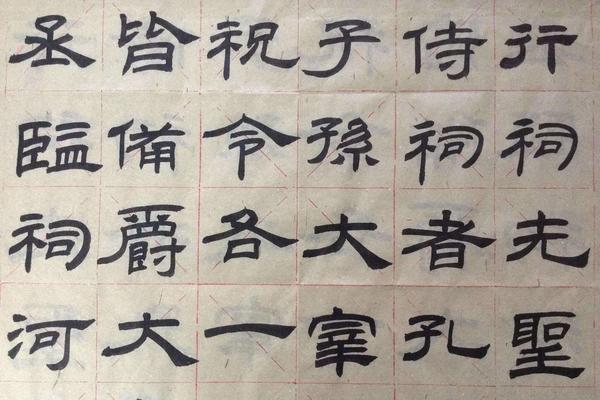 行祠先聖
侍祠者孔
子孫大宰
祝令各一
皆備爵大
丞監祠河